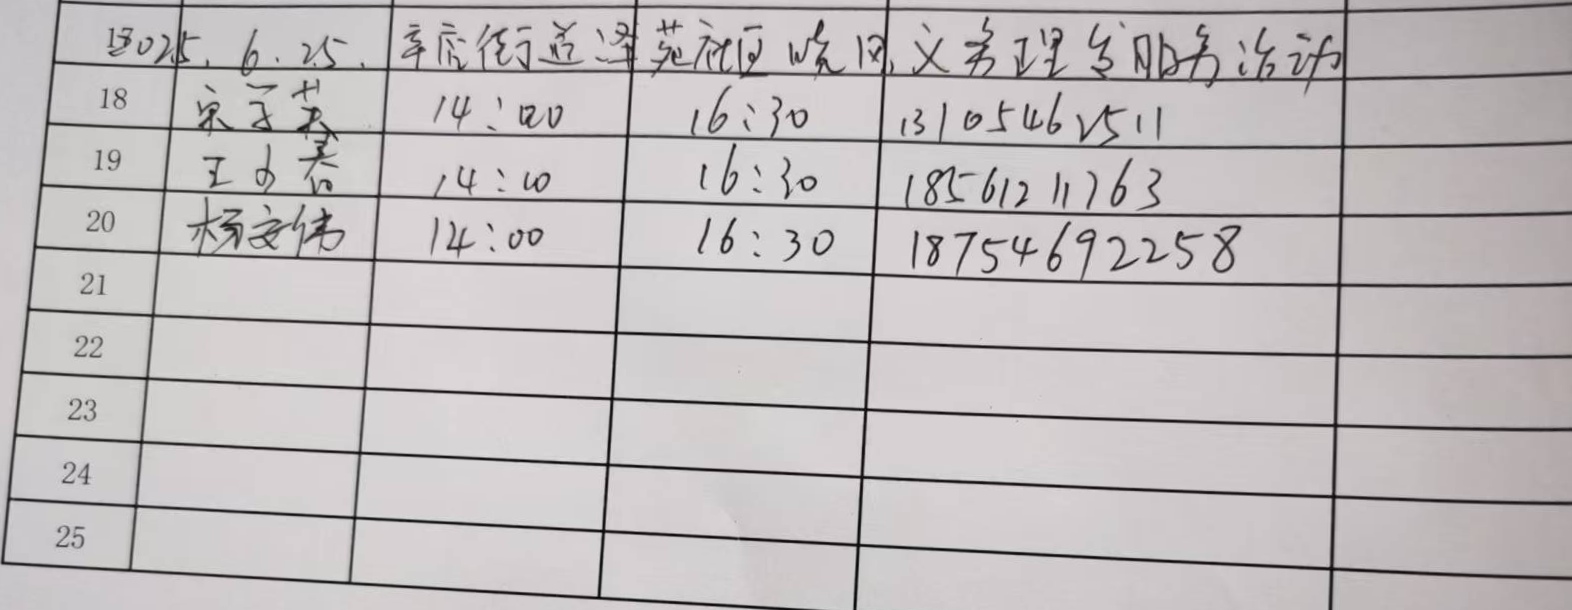 2025.6.25. 辛店街道泽苑社区 义务理发服务活动
18 14:00 16:30 13105462511
19 王 14:00 16:30 18561211763
20 杨文伟 14:00 16:30 18754692258
21
22
23
24
25